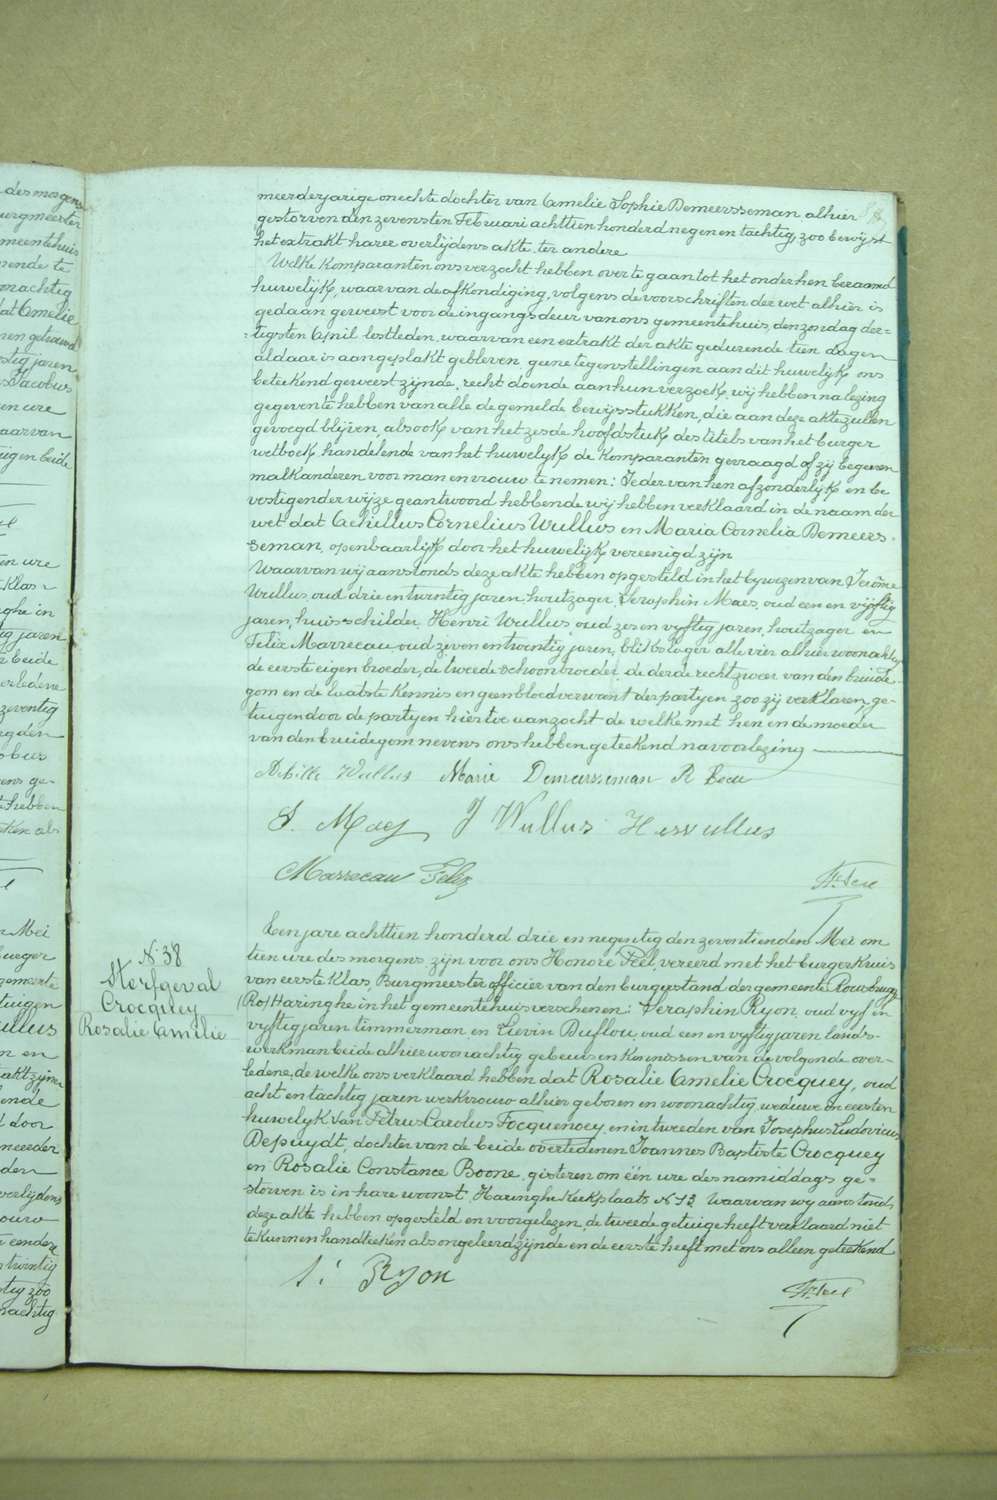 des mosgens
urgmeester
meentehuis
ende te
onachtig
dat Amelie
nen getrouwd
stig jaren
s Jacobus
en ure
aarvan
eigen beide
en ure
Klas
ghe in
ig jaren
beide
erledene
zeventig
obus
ens ge-
te hebben
eken als
n Mei
urger
gemeente
tuigen
ullus
n en
akt zijner
ende
d door
moeder
den
verlijdens
ouw
eendere
twintig
tig zoo
nachtig
meerderjarige onechte dochter van Amelie Sophie Demeersseman alhier
gestorven den zevensten Februari achttien honderd negen en tachtig, zoo bewijst
het extrakt harer overlijdens akte, ter andere
Welke Komparanten ons verzocht hebben over te gaan tot het onder hen beraamd
huwelijk, waarvan de afkondiging, volgens de voorschriften der wet alhier is
gedaan geweest voor de ingangsdeur van ons gemeentehuis, den zondag der-
tigsten April lestleden, waarvan een extrakt der akte gedurende tien dagen
aldaar is aangeplakt gebleven geene tegenstellingen aan dit huwelijk ons
beteekend geweest zijnde, recht doende aan hun verzoek, wij hebben na lezing
gegeven te hebben van alle de gemelde bewijsstukken, die aan deze akte zullen
gevoegd blijven, alsook van het zesde hoofdstuk des titels van het burger
wetboek handelende van het huwelijk de Komparanten gevraagd of zij begeeren
malkanderen voor man en vrouw te nemen: Ieder van hen afzonderlijk en be
vestigender wijze geantwoord hebbende wij hebben verklaard in de naam der
wet dat Achillus Cornelius Wullus en Maria Cornelia Demeers-
seman, openbaarlijk door het huwelijk vereenigd zijn
Waarvan wij aanstonds deze akte hebben opgesteld in het bywezen van Jerôme
Wullus, oud drie en twintig jaren, houtzager, Seraphin Maes, oud een en vijftig
jaren, huisschilder, Henri Wullus, oud zes en vyftig jaren, houtzager en
Felix Marrecau, oud zeven en twintig jaren, blikslager alle vier alhier woonachtig
de eerste eigen broeder, de tweede schoonbroeder de derde rechtzweer van den bruide-
gom en de laatste Kennis en geen bloedverwant der partyen zoo zij verklaren, ge-
tuigen door de partyen hiertoe aanzocht de welke met hen en de moeder
van den bruidegom nevens ons hebben geteekend na voorlezing
Achille Wullus Marie Demeersseman R Beau
S. Maes J Wullus H Wullus
Marrecau Felix
N. 38
Sterfgeval
Crocquey
Rosalie Amelie
Een jare achttien honderd drie en negentig den zeventienden Mei om
tien ure des morgens zijn voor ons Honoré Peel, vereerd met het burgerkruis
van eerste Klas, Burgmeester officier van den burgerstand der gemeente Rousbrugge
(Ro) Haringhe in het gemeentehuis verschenen: Seraphin Ryon, oud vyf en
vyftig jaren timmerman en Lievin Duflou, oud een en vyftig jaren lands-
werkman beide alhier woonachtig gebeurs en Kennissen van de volgende over-
ledene, de welke ons verklaard hebben dat Rosalie Amelie Crocquey, oud
acht en tachtig jaren werkvrouw alhier geboren en woonachtig, weduwe in eersten
huwelyk van Petrus Carolus Focquenoey, en in tweeden van Josephus Ludovicus
Depuydt, dochter van de beide overledenen Joannes Baptiste Crocquey
en Rosalie Constance Boone, gisteren om één ure des namiddags ge-
storven is in hare woonst, Haringhe Kerkplaats N 13 Waarvan wy aanstonds
deze akte hebben opgesteld en voorgelezen, de tweede getuige heeft verklaard niet
te kunnen handteeken als ongeleerd zijnde en de eerste heeft met ons alleen geteekend
S. Ryon